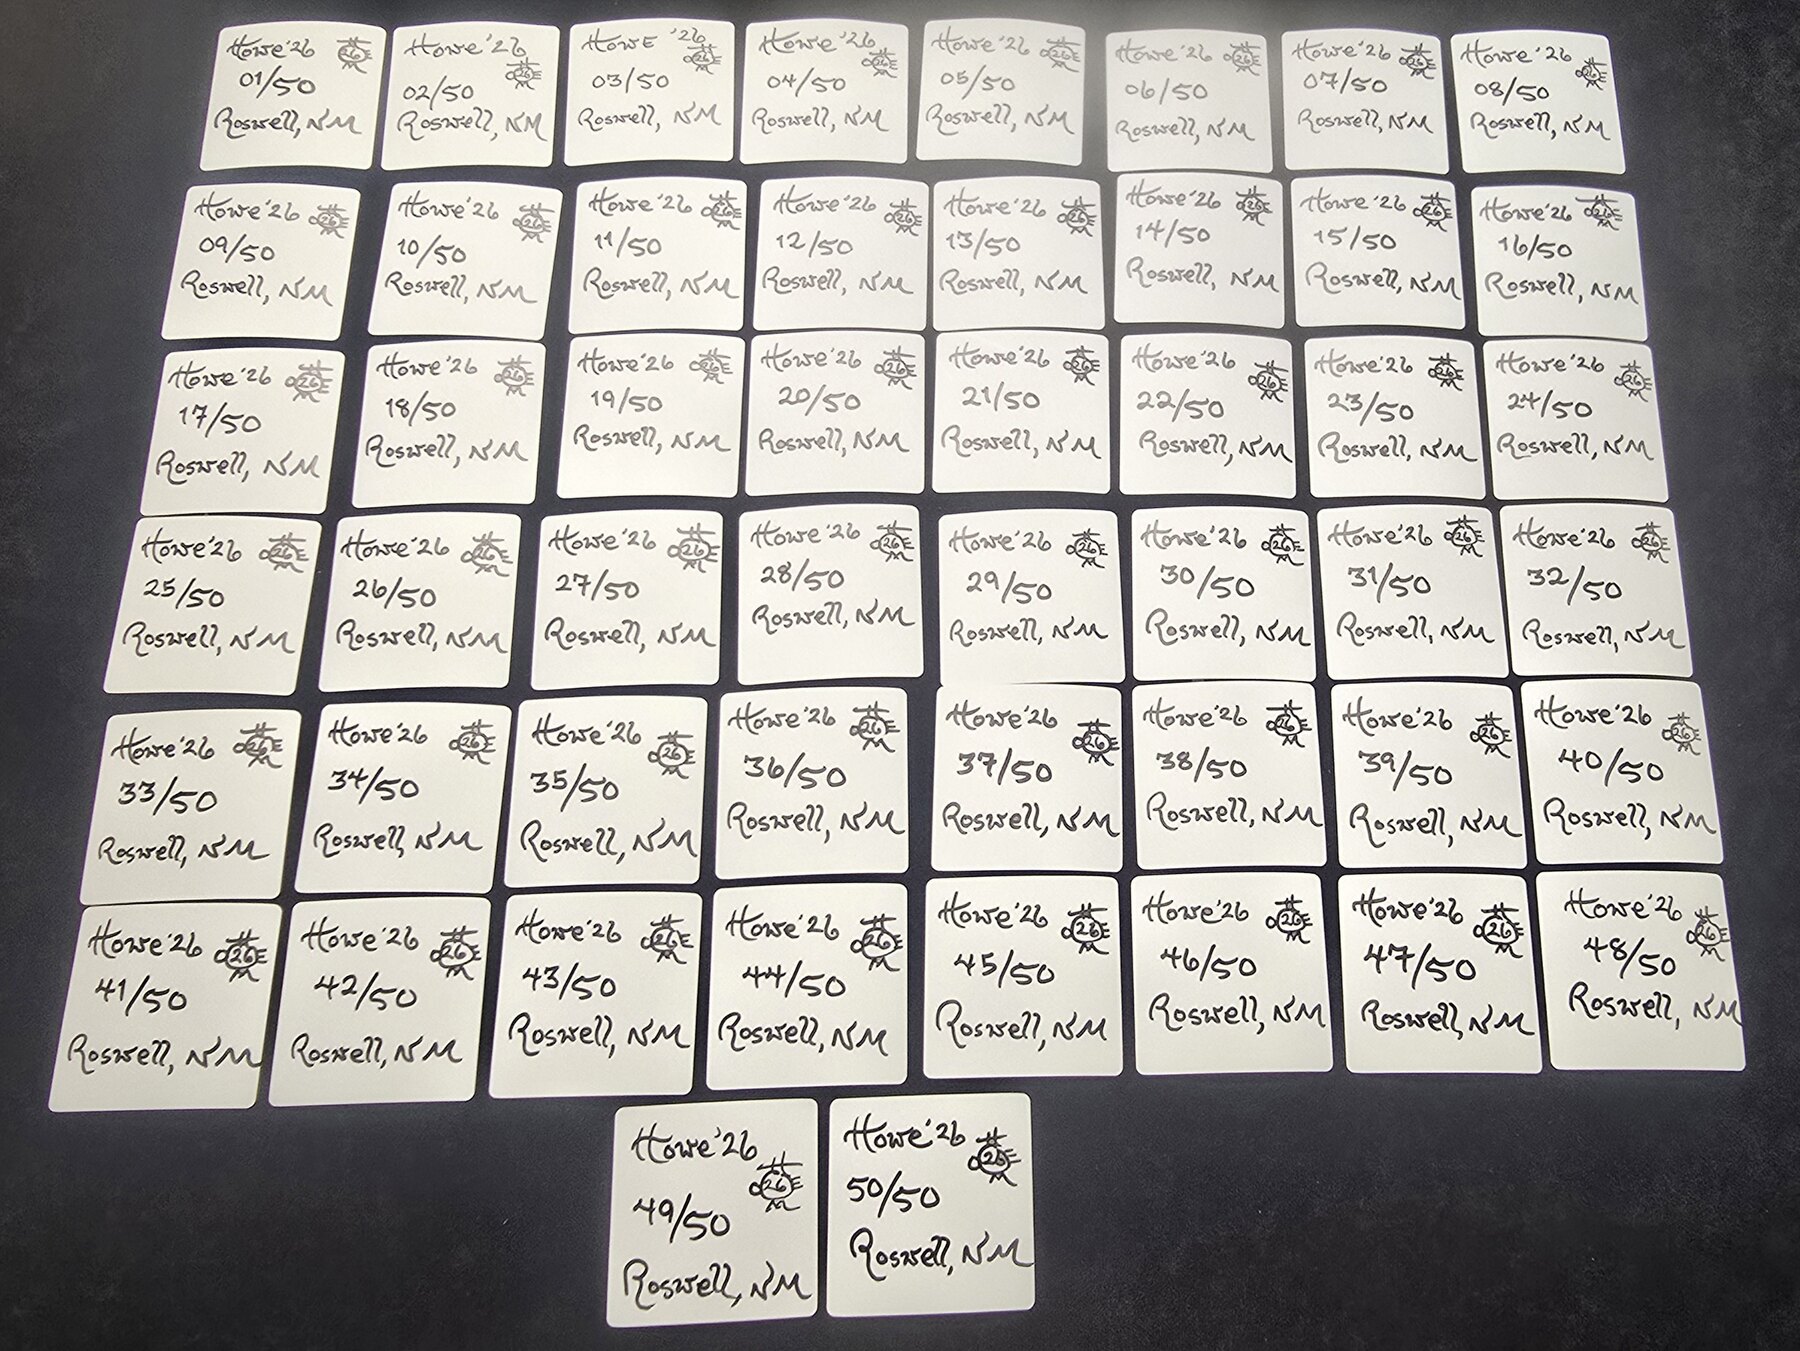 Howe '26
26
01/50
Roswell, NM
Howe '26
26
02/50
Roswell, NM
HowE '26
26
03/50
Roswell, NM
Howe '26
26
04/50
Roswell, NM
Howe '26
26
05/50
Roswell, NM
Howe '26
26
06/50
Roswell, NM
Howe '26
26
07/50
Roswell, NM
Howe '26
26
08/50
Roswell, NM
Howe '26
26
09/50
Roswell, NM
Howe '26
26
10/50
Roswell, NM
Howe '26
26
11/50
Roswell, NM
Howe '26
26
12/50
Roswell, NM
Howe '26
26
13/50
Roswell, NM
Howe '26
26
14/50
Roswell, NM
Howe '26
26
15/50
Roswell, NM
Howe '26
26
16/50
Roswell, NM
Howe '26
26
17/50
Roswell, NM
Howe '26
26
18/50
Roswell, NM
Howe '26
26
19/50
Roswell, NM
Howe '26
26
20/50
Roswell, NM
Howe '26
26
21/50
Roswell, NM
Howe '26
26
22/50
Roswell, NM
Howe '26
26
23/50
Roswell, NM
Howe '26
26
24/50
Roswell, NM
Howe '26
26
25/50
Roswell, NM
Howe '26
26
26/50
Roswell, NM
Howe '26
26
27/50
Roswell, NM
Howe '26
26
28/50
Roswell, NM
Howe '26
26
29/50
Roswell, NM
Howe '26
26
30/50
Roswell, NM
Howe '26
26
31/50
Roswell, NM
Howe '26
26
32/50
Roswell, NM
Howe '26
26
33/50
Roswell, NM
Howe '26
26
34/50
Roswell, NM
Howe '26
26
35/50
Roswell, NM
Howe '26
26
36/50
Roswell, NM
Howe '26
26
37/50
Roswell, NM
Howe '26
26
38/50
Roswell, NM
Howe '26
26
39/50
Roswell, NM
Howe '26
26
40/50
Roswell, NM
Howe '26
26
41/50
Roswell, NM
Howe '26
26
42/50
Roswell, NM
Howe '26
26
43/50
Roswell, NM
Howe '26
26
44/50
Roswell, NM
Howe '26
26
45/50
Roswell, NM
Howe '26
26
46/50
Roswell, NM
Howe '26
26
47/50
Roswell, NM
Howe '26
26
48/50
Roswell, NM
Howe '26
26
49/50
Roswell, NM
Howe '26
26
50/50
Roswell, NM